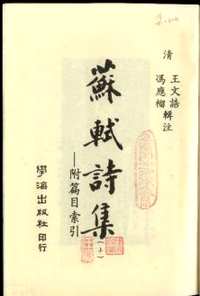 清
王文誥輯注
馮應榴
蘇軾詩集
(上)
——附篇目索引
學海出版社印行